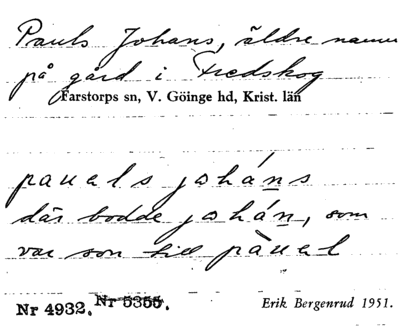 Pauls Johans, äldre namn
på gård i Fredskog
Farstorps sn, V. Göinge hd, Krist. län
pauels joháns
där bodde johán, som
var son till pàuel
Nr 4932. Nr 5355.
Erik Bergenrud 1951.